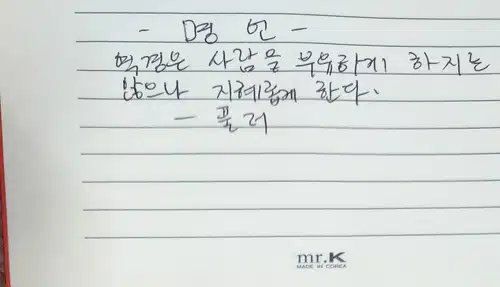 - 명언 -
역경은 사람을 부유하게 하지는
않으나 지혜롭게 한다.
- 풀러
mr.K
MADE IN KOREA